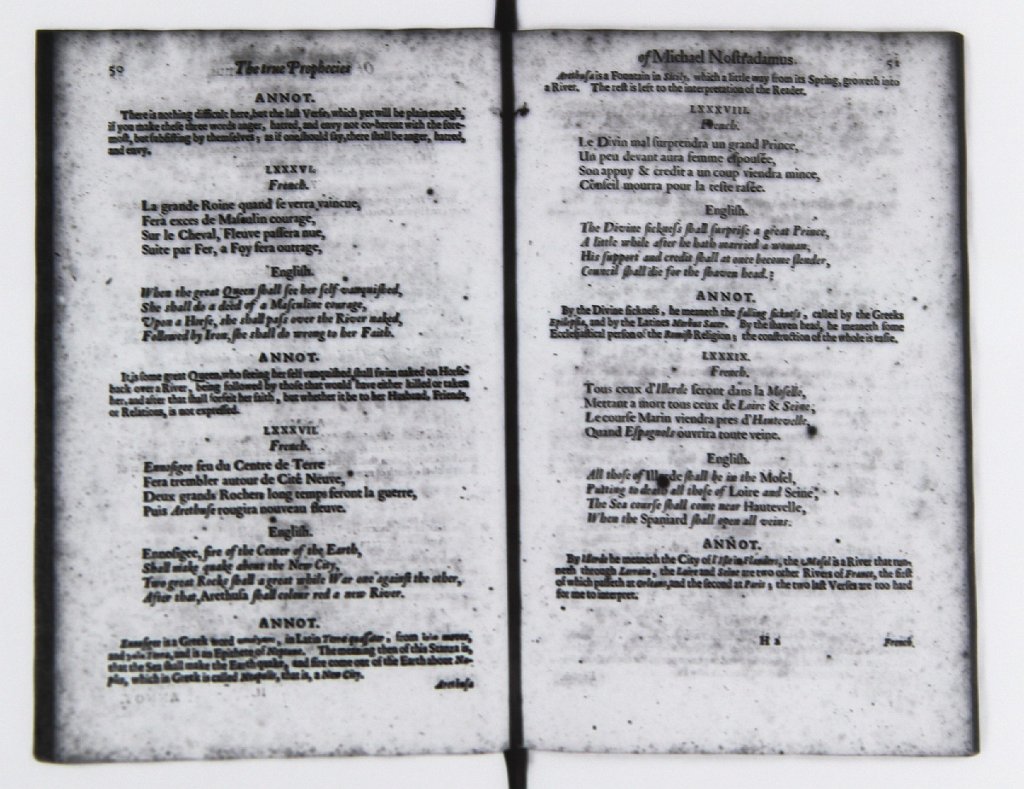 50
The true Prophecies
ANNOT.
There is nothing difficult here, but the last Verse, which yet will be plain enough,
if you make these three words anger, hatred, and envy not co-hereat with the fore-
most, but subsisting by themselves; as if one should say, there shall be anger, hatred,
and envy.
LXXXVI.
French.
La grande Roine quand se verra vaincue,
Fera exces de Masculin courage,
Sur le Cheval, Fleuve passera nue,
Suite par Fer, a Foy fera outrage,
English.
When the great Queen shall see her self vanquished,
She shall do a deed of a Masculine courage,
Upon a Horse, she shall pass over the River naked,
Followed by Iron, she shall do wrong to her Faith.
ANNOT.
It is some great Queen, who seeing her self vanquished shall swim naked on Horse-
back over a River, being followed by those that would have either killed or taken
her, and after that shall forfeit her faith, but whether it be to her Husband, Friends,
or Relations, is not expressed.
LXXXVII.
French.
Ennosigee feu du Centre de Terre
Fera trembler autour de Cité Neuve,
Deux grands Rochers long temps feront la guerre,
Puis Arethuse rougira nouveau fleuve.
English.
Ennosigee, fire of the Center of the Earth,
Shall make quake about the New City,
Two great Rocks shall a great while War one against the other,
After that, Arethusa shall colour red a new River.
ANNOT.
Ennosigee is a Greek word in Latin Terræ quassator, from
and is an Epithete of Neptune. The meaning then of this Stanza is,
that the Sea shall make the Earth quake, and fire come out of the Earth about Na-
ples, which in Greek is called Neapolis, that is, a New City.
Arethusa
of Michael Nostradamus.
51
Arethusa is a Fountain in Sicily, which a little way from its Spring, groweth into
a River. The rest is left to the interpretation of the Reader.
LXXXVIII.
French.
Le Divin mal surprendra un grand Prince,
Un peu devant aura femme espousée,
Son appuy & credit a un coup viendra mince,
Conseil mourra pour la teste rasée.
English.
The Divine sickness shall surprise a great Prince,
A little while after he hath married a woman,
His support and credit shall at once become slender,
Council shall die for the shaven head.;
ANNOT.
By the Divine sickness, he meaneth the falling sickness, called by the Greeks
Epilepsia, and by the Latines Morbus Sacer. By the shaven head, he meaneth some
Ecclesiastical person of the Romish Religion; the construction of the whole is easie.
LXXXIX.
French.
Tous ceux d'Illerde seront dans la Moselle,
Mettant a mort tous ceux de Loire & Seine,
Le course Marin viendra pres d'Hautevelle,
Quand Espagnols ouvrira toute veine.
English.
All those of Illerde shall be in the Mosel,
Putting to death all those of Loire and Seine,
The Sea course shall come near Hautevelle,
When the Spaniard shall open all veins.
ANNOT.
By Illerde he meaneth the City of l'Isle in Flanders, the Mosel is a River that run-
neth through Lorrain, the Loire and Seine are two other Rivers of France, the first
of which passeth at Orleans, and the second at Paris; the two last Verses are too hard
for me to interpret.
H 2
French.